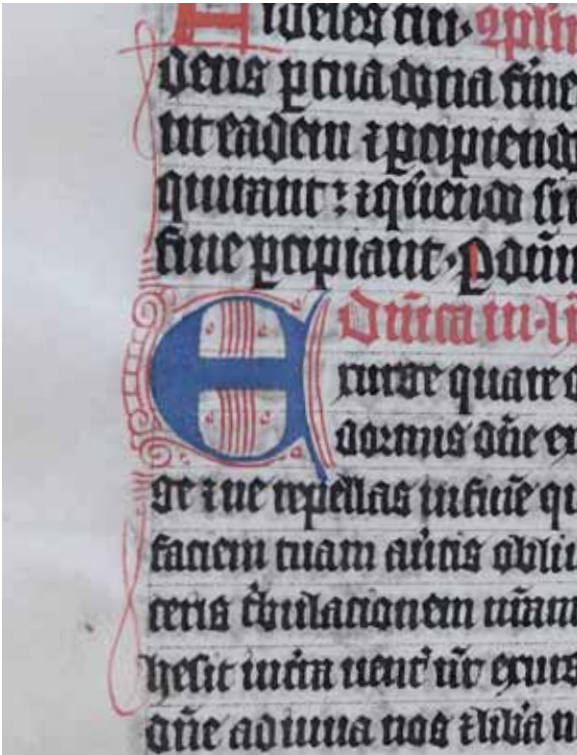 ideles tui. 9pl
deus p tua dona firme
ut eadem ⁊ pcipiendo
quirant : ⁊ q̄rendo si
fine pcipiant. P dūm
Dn̄ica in. lx
E xurge quare o
dormis dn̄e ex
ge ⁊ ne repellas in finē qu
faciem tuam aūtis obliu
ceris t̄bulationem nr̄am
hesit in t̄ra uent' nr̄ exurg
dn̄e adiuua nos ⁊ lib̄a n